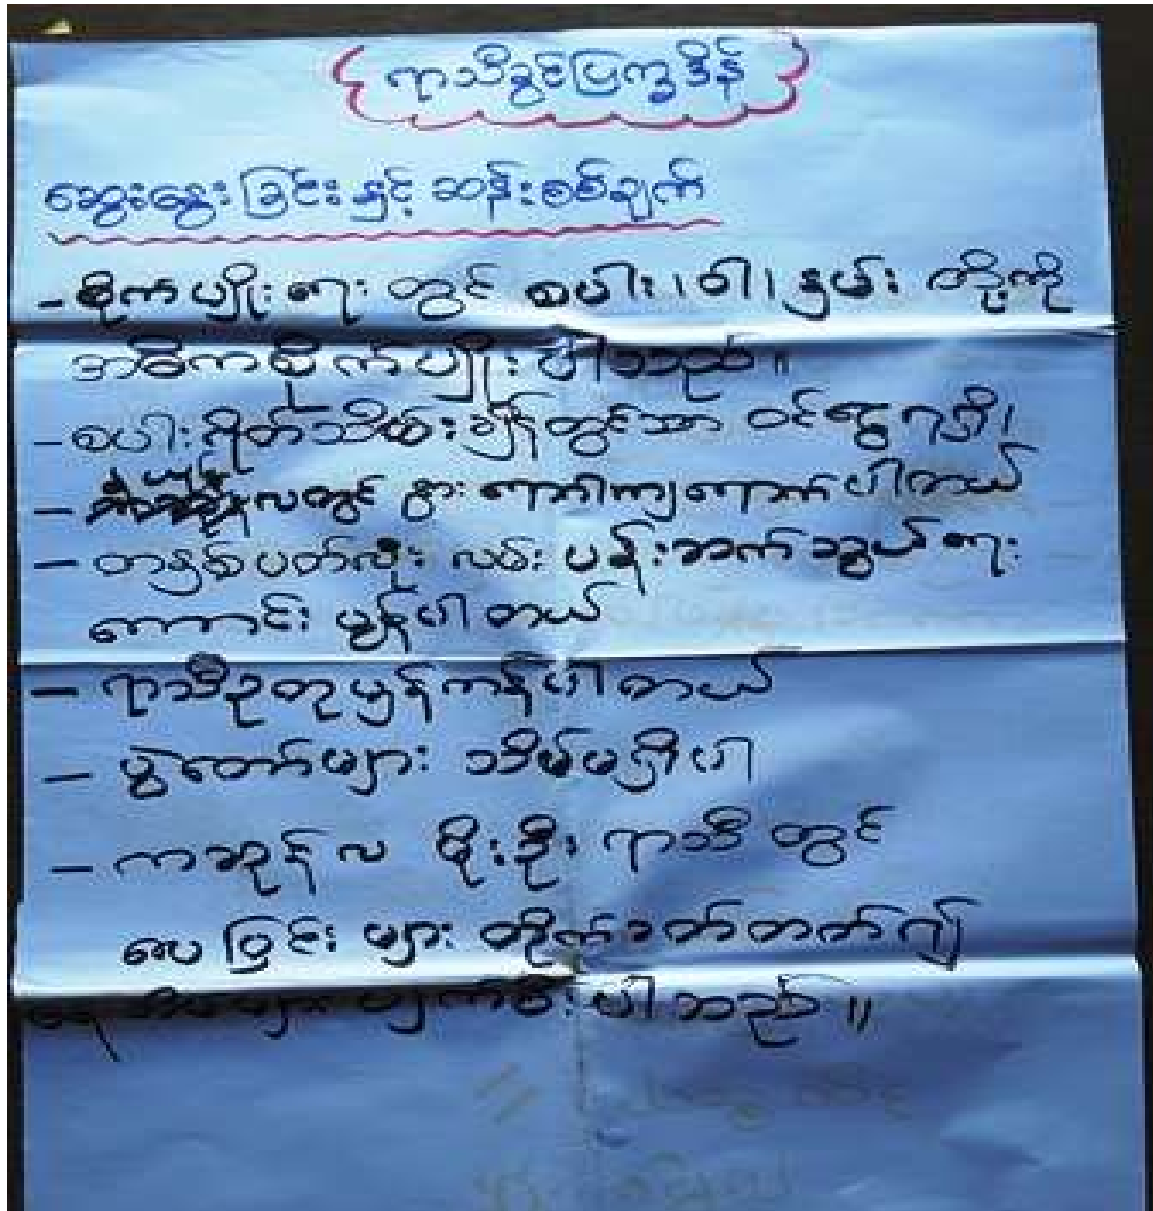 ရာသီခွင်ပြက္ခဒိန်
ဆွေးနွေးခြင်းနှင့် ဆန်းစစ်ချက်
- စိုက်ပျိုးရေး တွင် စပါး၊ ဝါ၊ နှမ်း တို့ကို
အဓိကစိုက်ပျိုးပါသည်။
- စပါးရိတ်သိမ်းချိန်တွင်သာ ဝင်ငွေရရှိ၊
- လတွင် ငှား ရောဂါကျရောက်ပါတယ်
- တနှစ်ပတ်လုံး လမ်းပန်းဆက်သွယ်ရေး
ကောင်းမွန်ပါတယ်
- ရာသီဥတုမှန်ကန်ပါတယ်
- ပွဲတော်များ သိမ်မရှိပါ
- ကဆုန်လ မိုးဦးရာသီတွင်
လေပြင်းများ တိုက်ခတ်တတ်၍
များ ပျက်စီးပါသည်။